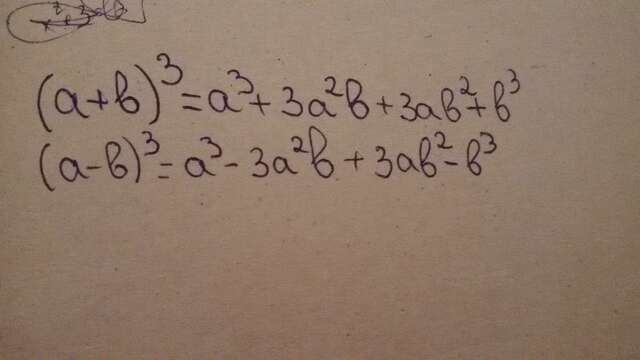 (a+b)³=a³+3a²b+3ab²+b³
(a-b)³=a³-3a²b+3ab²-b³